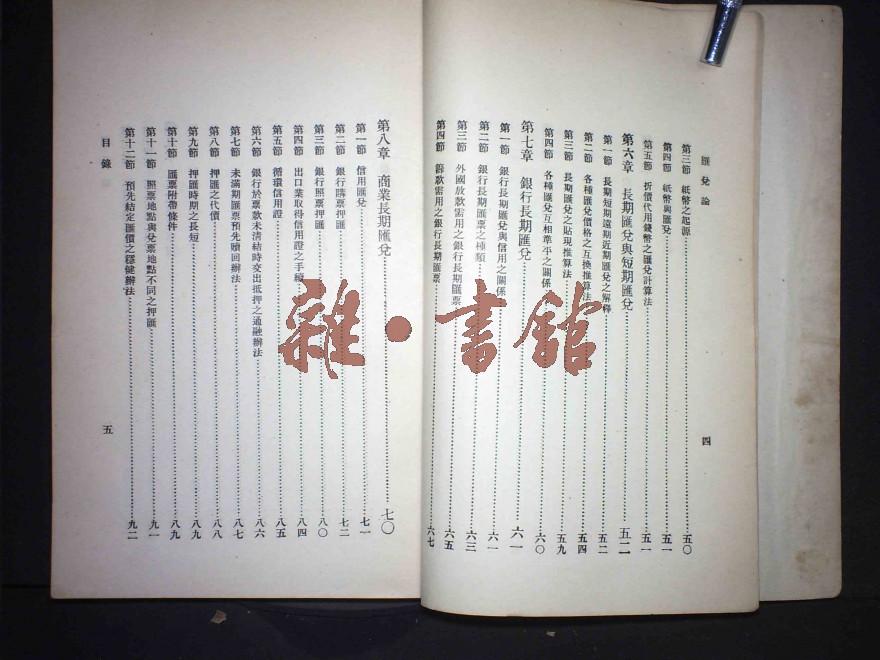 匯兌論
第三節 紙幣之起源……五〇
第四節 紙幣與匯兌……五一
第五節 折價代用錢幣之匯兌計算法……五一
第六章 長期匯兌與短期匯兌……五二
第一節 長期短期遠期近期匯兌之解釋……五二
第二節 各種匯兌價格之互換推算法……五四
第三節 長期匯兌之貼現推算法……五九
第四節 各種匯兌互相準平之關係……六〇
第七章 銀行長期匯兌……六一
第一節 銀行長期匯兌與信用之關係……六一
第二節 銀行長期匯票之種類……六三
第三節 外國放款需用之銀行長期匯票……六五
第四節 籌款需用之銀行長期匯票……六七
四
第八章 商業長期匯兌……七〇
第一節 信用匯兌……七一
第二節 銀行購票押匯……七二
第三節 銀行照票押匯……八〇
第四節 出口業取得信用證之手續……八四
第五節 循環信用證……八五
第六節 銀行於票款未清結時交出抵押之通融辦法……八六
第七節 未滿期匯票預先贖回辦法……八七
第八節 押匯之代價……八八
第九節 押匯時期之長短……八九
第十節 匯票附帶條件……八九
第十一節 照票地點與兌票地點不同之押匯……九一
第十二節 預先結定匯價之穩健辦法……九二
目錄
五
雜·書館